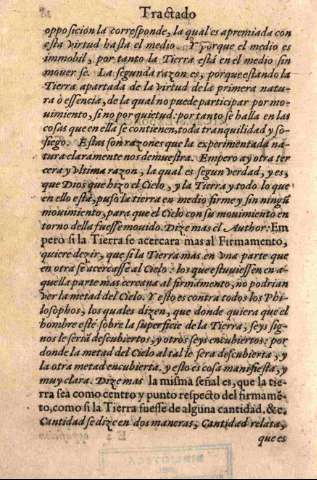 Tractado
opposición la corresponde, la qual es apremiada con
esta virtud hasta el medio. Y porque el medio es
immobil, por tanto la Tierra està en el medio sin
mouerse. La segunda razon es, porque estando la
Tierra apartada de la virtud de la primera natu
ra ò essencia, de la qual no puede participar por mo-
uimiento, si no por quietud: por tanto se halla en las
cosas que en ella se contienen, toda tranquilidad y so-
siego. Estas son razones que la experimentada na
tura claramente nos demuestra. Empero ay otra ter
cera y vltima razon, la qual es segun verdad, y es,
que Dios que hizo el Cielo, y la Tierra y todo lo que
en ello està, puso la tierra en medio firme y sin ningũ
mouimiento, para que el Cielo con su mouimiento en
torno della fuesse mouido. Dize mas el Author: Em
pero si la Tierra se acercara mas al Firmamento,
quiere dezir, que si la Tierra mas en vna parte que
en otra se acercasse al Cielo: los que estuuiessen en a-
quella parte mas cercana al firmamento, no podrian
ver la metad del Cielo. Y esto es contra todos los Phi-
losophos, los quales dizen, que donde quiera que el
hombre esté sobre la superficie de la Tierra, seys sig-
nos le seràn descubiertos, y otros seys encubiertos: por
donde la metad del Cielo al tal le sera descubierta, y
la otra metad encubierta, y esto es cosa manifiesta, y
muy clara. Dize mas la misma señal es, que la tie-
rra sea como centro y punto respecto del firmamẽ-
to, como si la Tierra fuesse de alguna cantidad, &c.
Cantidad se dize en dos maneras, Cantidad relata,
que es